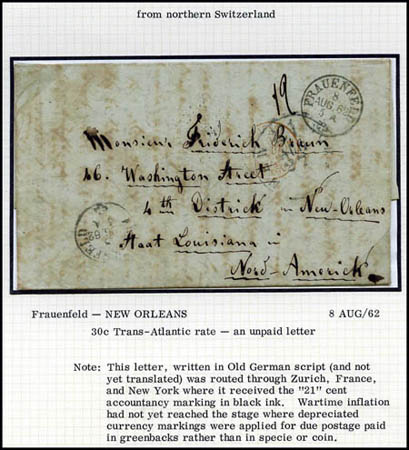 from northern Switzerland
19
FRAUENFELD
8
AUG 62
Monsieur Fridérick Braun
46. Washington Street
4th District in New-Orleans
Staat Louisiana in
Nord-Americk
Frauenfeld — NEW ORLEANS 8 AUG/62
30c Trans-Atlantic rate — an unpaid letter
Note: This letter, written in Old German script (and not
yet translated) was routed through Zurich, France,
and New York where it received the "21" cent
accountancy marking in black ink. Wartime inflation
had not yet reached the stage where depreciated
currency markings were applied for due postage paid
in greenbacks rather than in specie or coin.